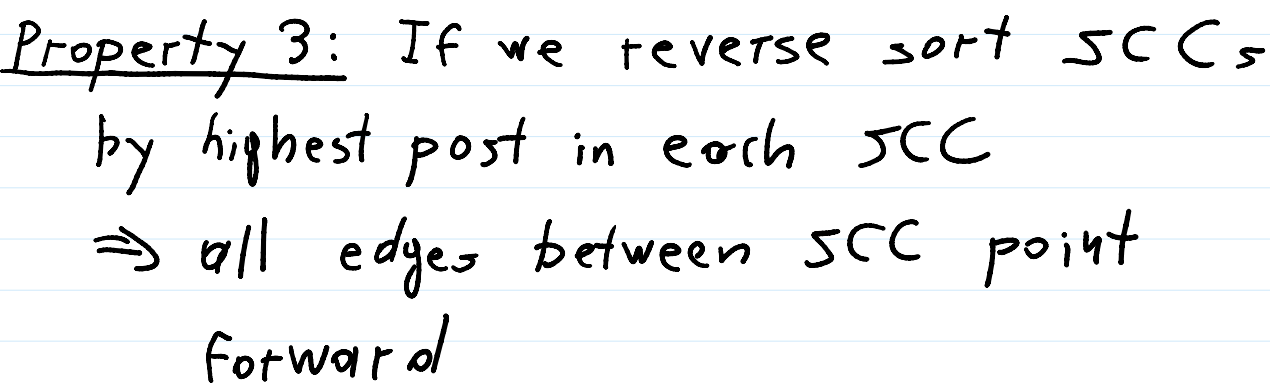 Property 3: If we reverse sort SCCs
by highest post in each SCC
⇒ all edges between SCC point
forward